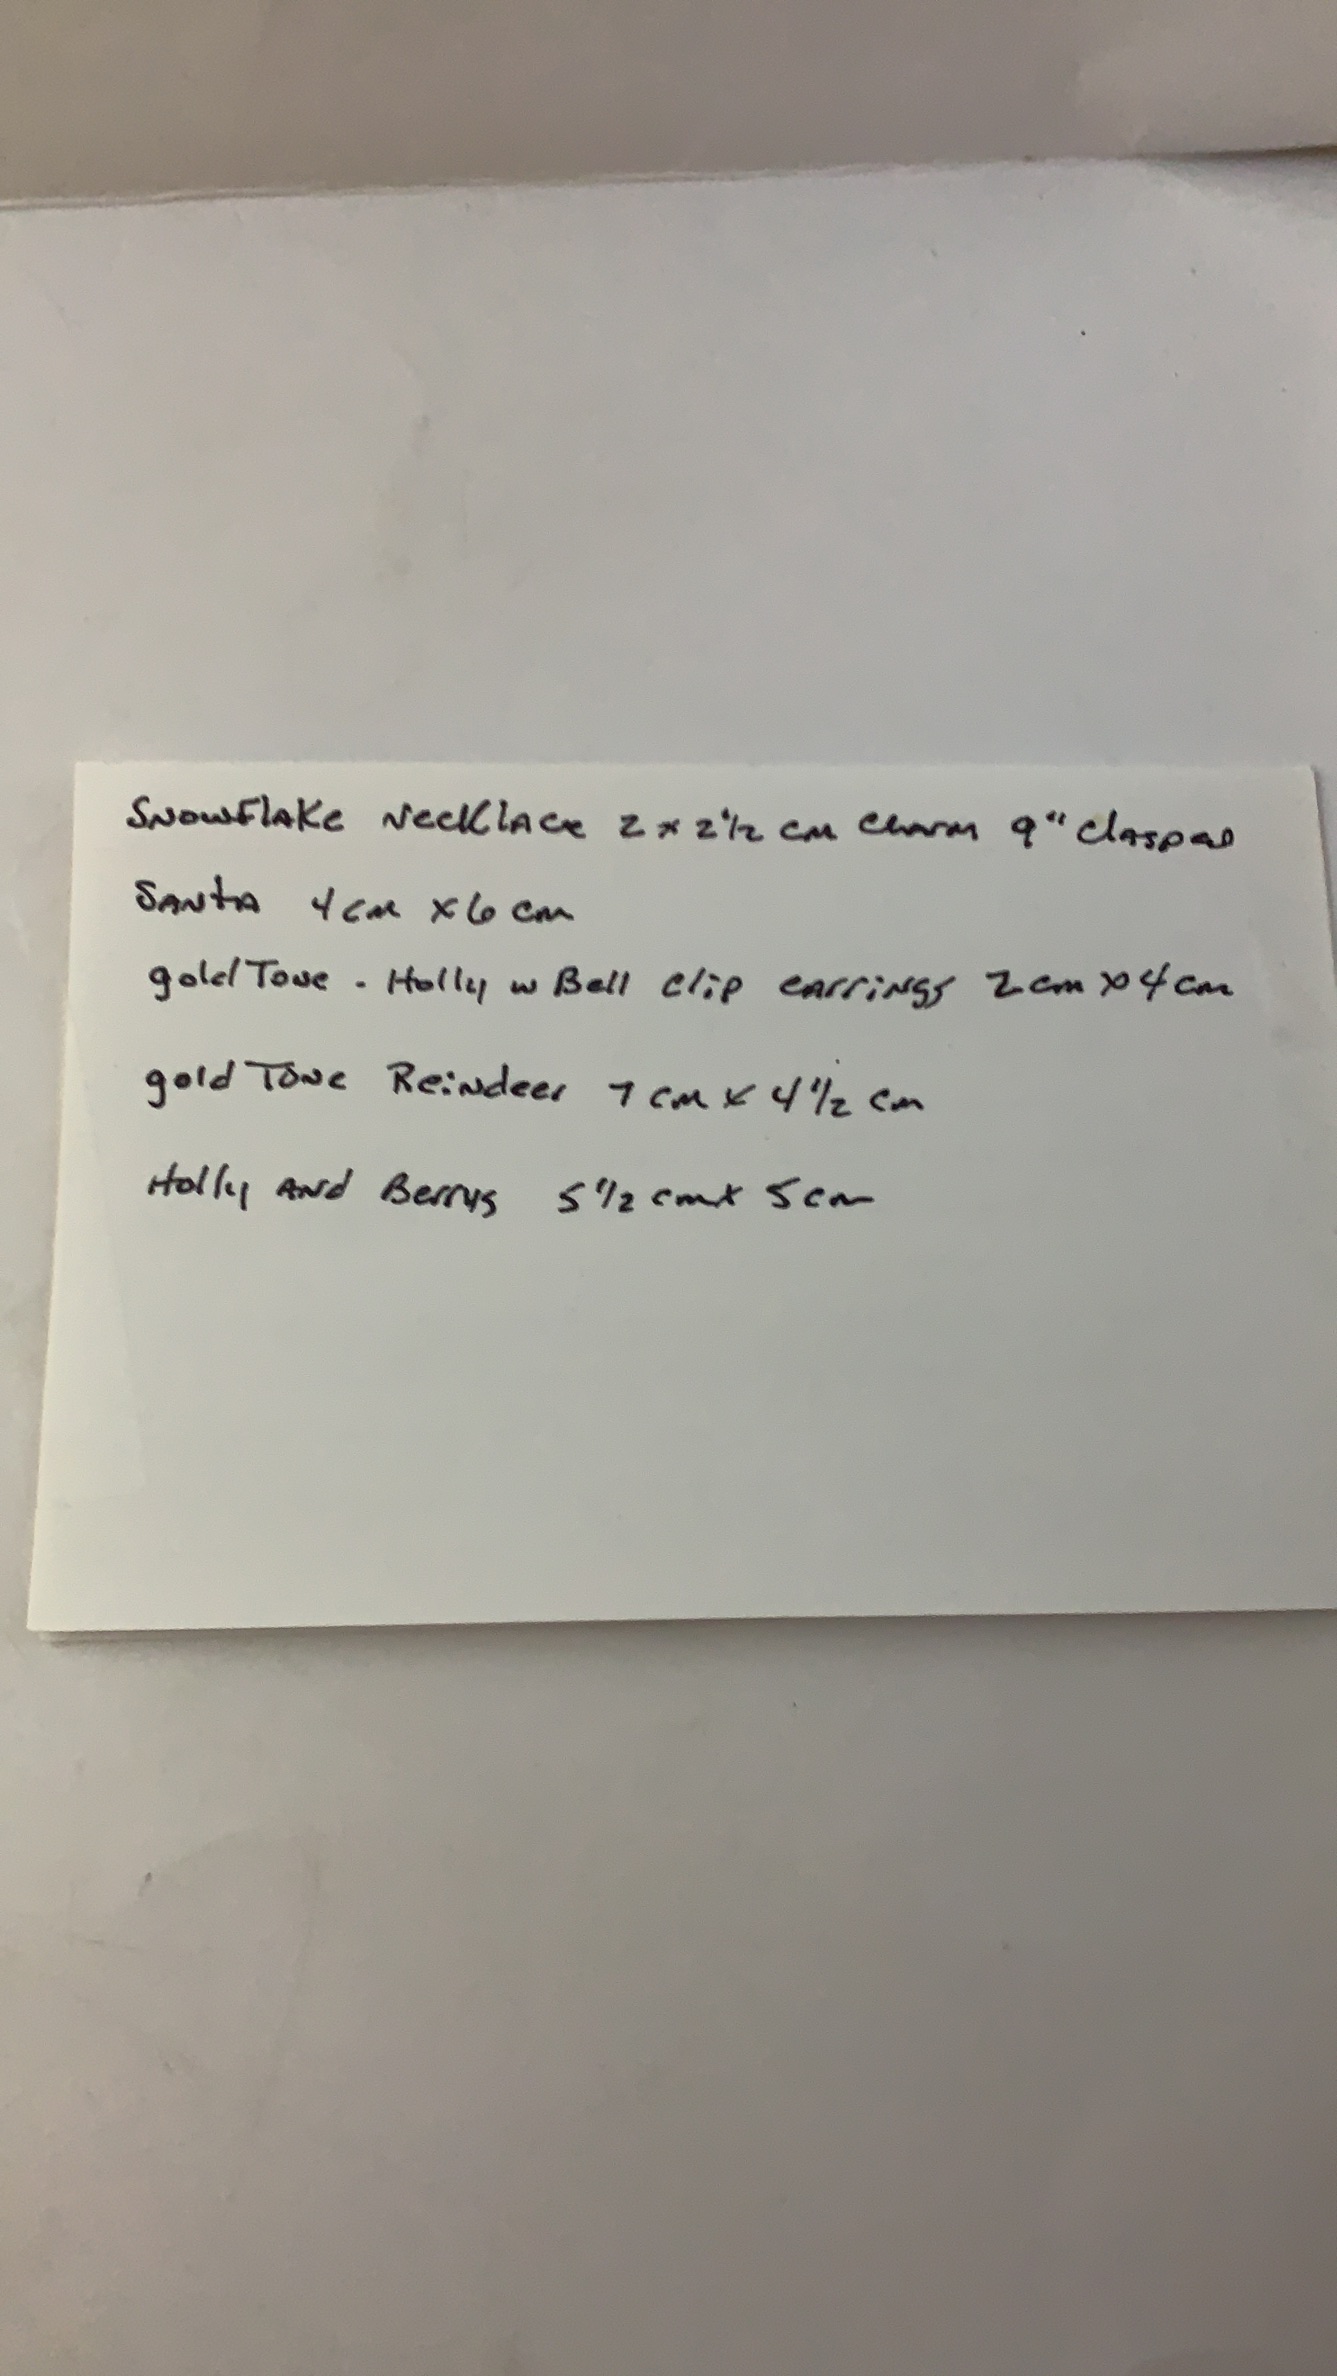 Snowflake Necklace 2 x 2 1/2 cm Charm 9" clasped
Santa 4 cm x 6 cm
gold Tone - Holly w Bell clip earrings 2 cm x 4 cm
gold Tone Reindeer 7 cm x 4 1/2 cm
Holly and Berrys 5 1/2 cm x 5 cm